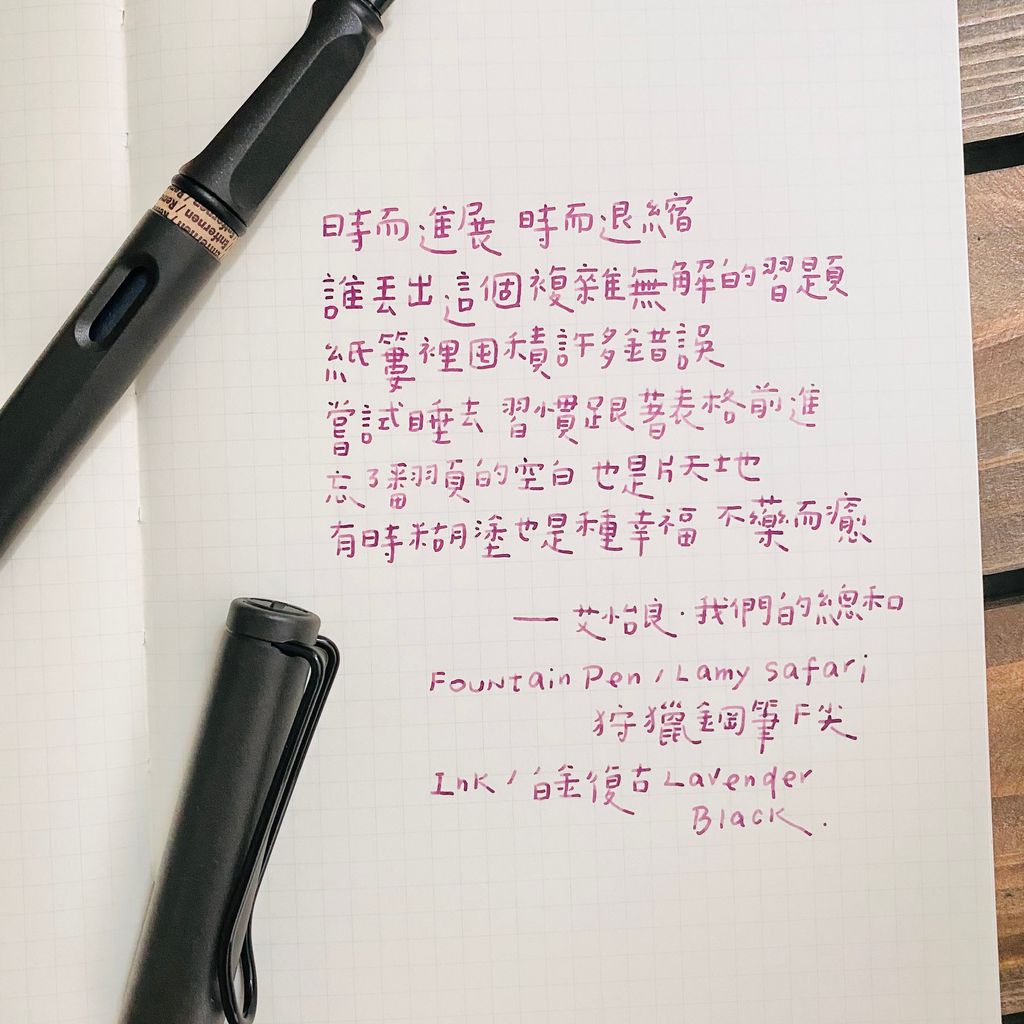 時而進展 時而退縮
誰丟出這個複雜無解的習題
紙簍裡囤積許多錯誤
嘗試睡去 習慣跟著表格前進
忘了翻頁的空白 也是片天地
有時糊塗也是種幸福 不藥而癒
— 艾怡良．我們的總和
Fountain Pen / Lamy Safari
狩獵鋼筆 F尖
Ink / 白金復古 Lavender
Black.
Infernen / Rem